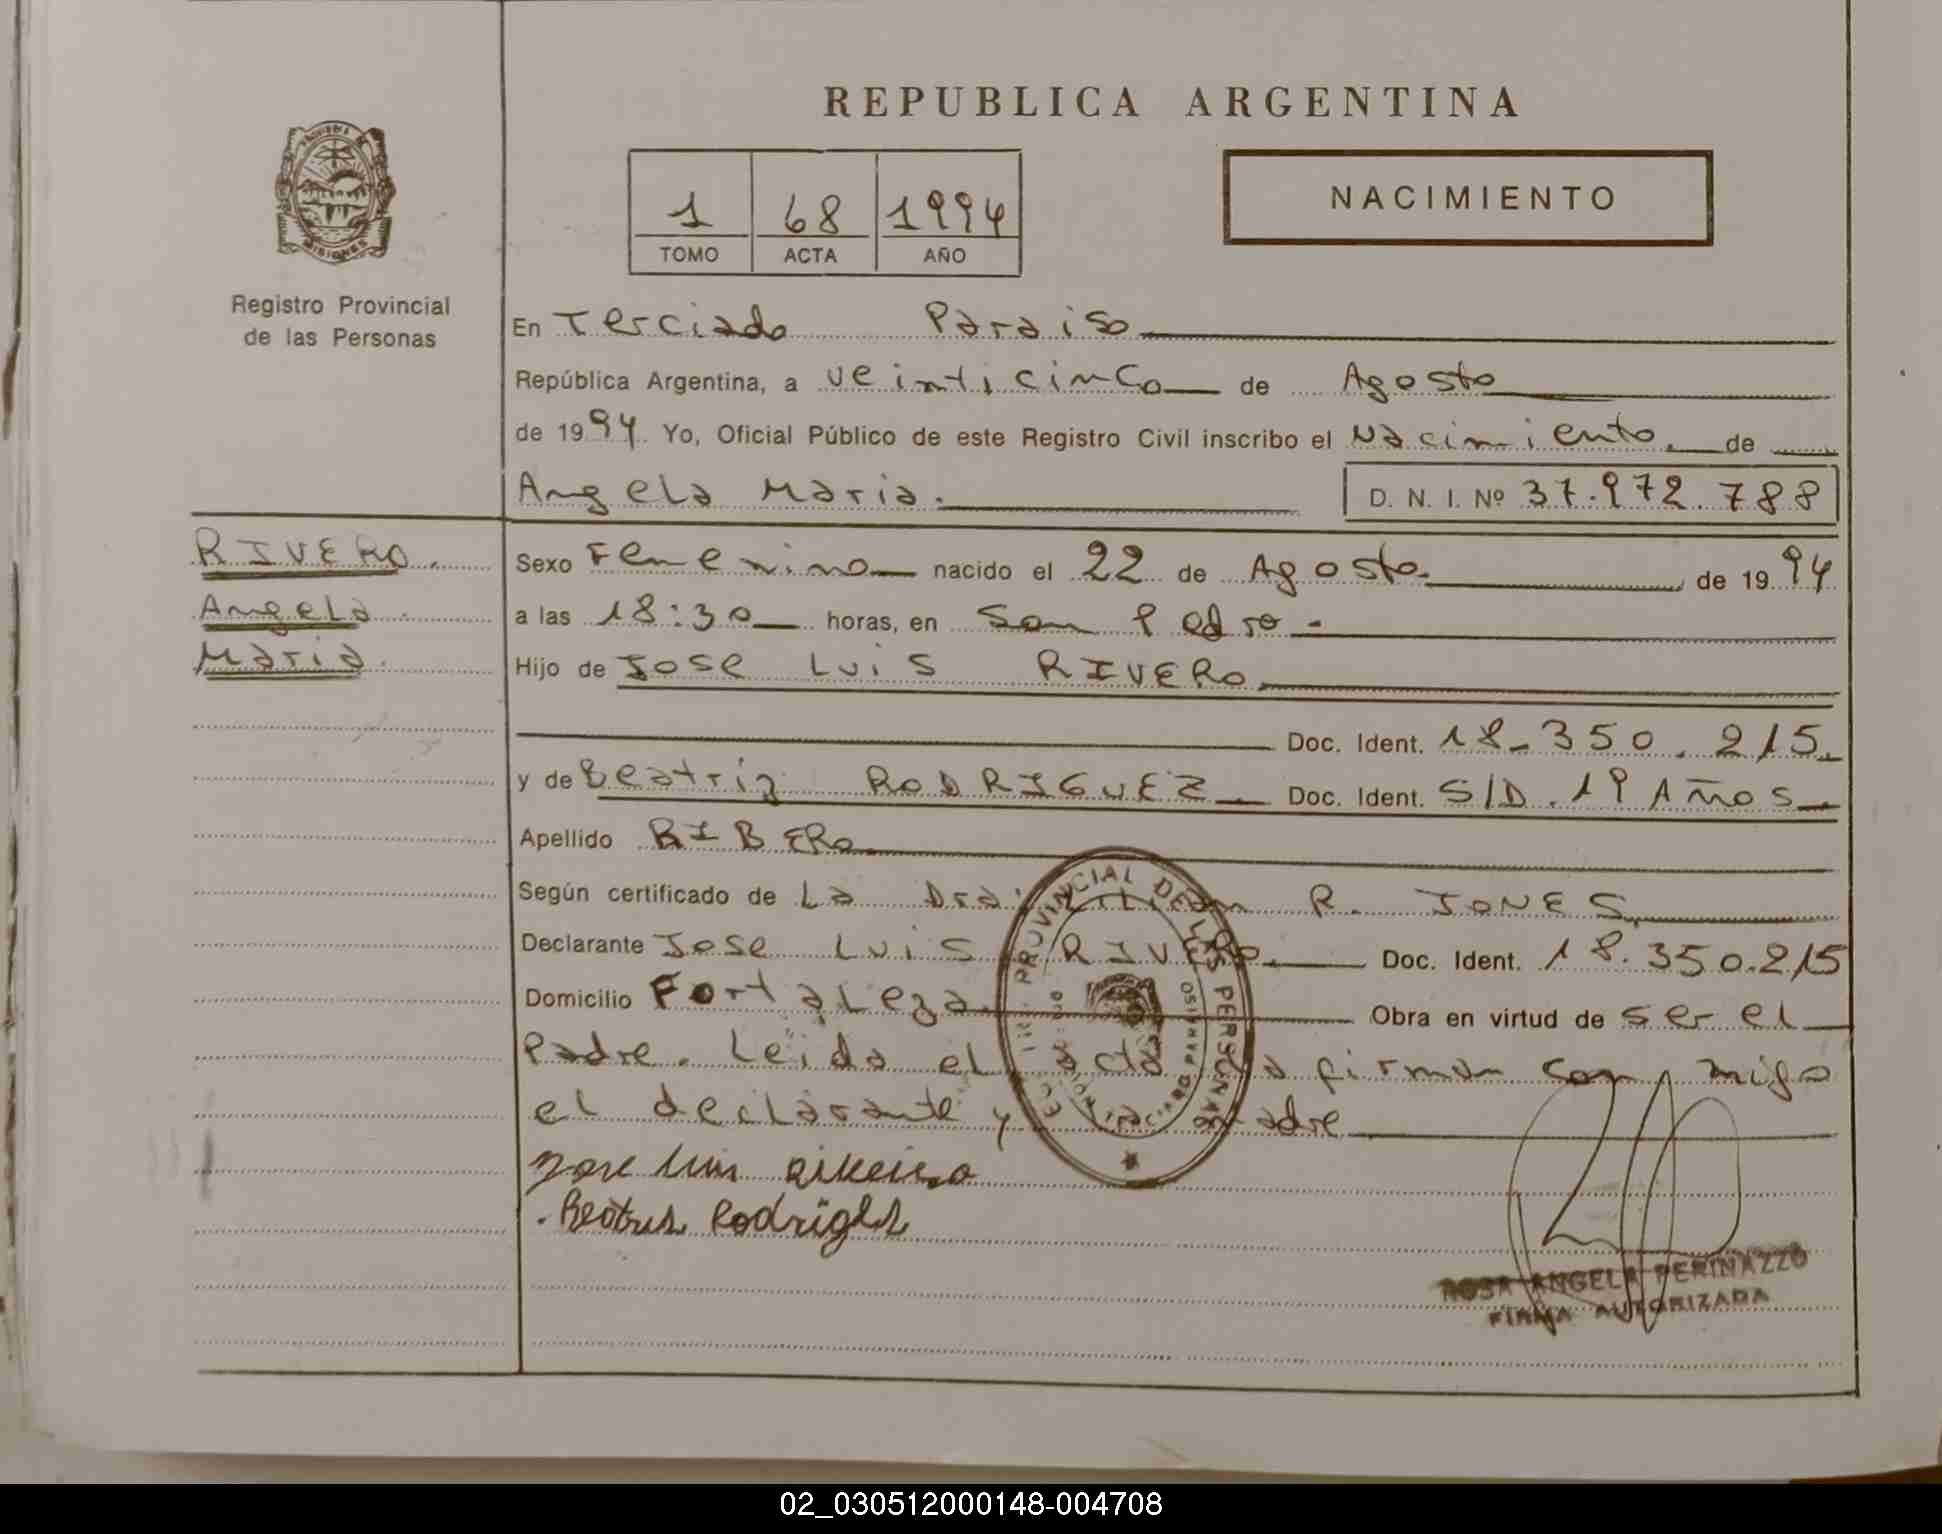 REPUBLICA ARGENTINA
MISIONES
Registro Provincial
de las Personas
1 68 1994
TOMO ACTA AÑO
NACIMIENTO
En Terciado Paraiso
República Argentina, a veinticinco de Agosto
de 1994. Yo, Oficial Público de este Registro Civil inscribo el Nacimiento. de
Angela Maria.
D. N. I. Nº 37.972.788
RIVERO.
Angela.
Maria.
Sexo Femenino nacido el 22 de Agosto. de 1994
a las 18:30 horas, en San Pedro.-
Hijo de Jose Luis RIVERO.
Doc. Ident. 18.350.215.
y de Beatriz RODRIGUEZ Doc. Ident. S/D. 19 Años
Apellido RIBERO
Según certificado de La Dra: R. JONES.
Declarante Jose Luis RIVERO. Doc. Ident. 18.350.215
Domicilio Fortaleza. Obra en virtud de ser el
Padre. Leida el acta la firman con migo
el declarante y madre
PROVINCIAL DE LAS PERSONAS
PARAISO
Jose Luis
Beatris Rodrigues
ROSA ANGELA PERINAZZO
FIRMA AUTORIZADA
02_030512000148-004708